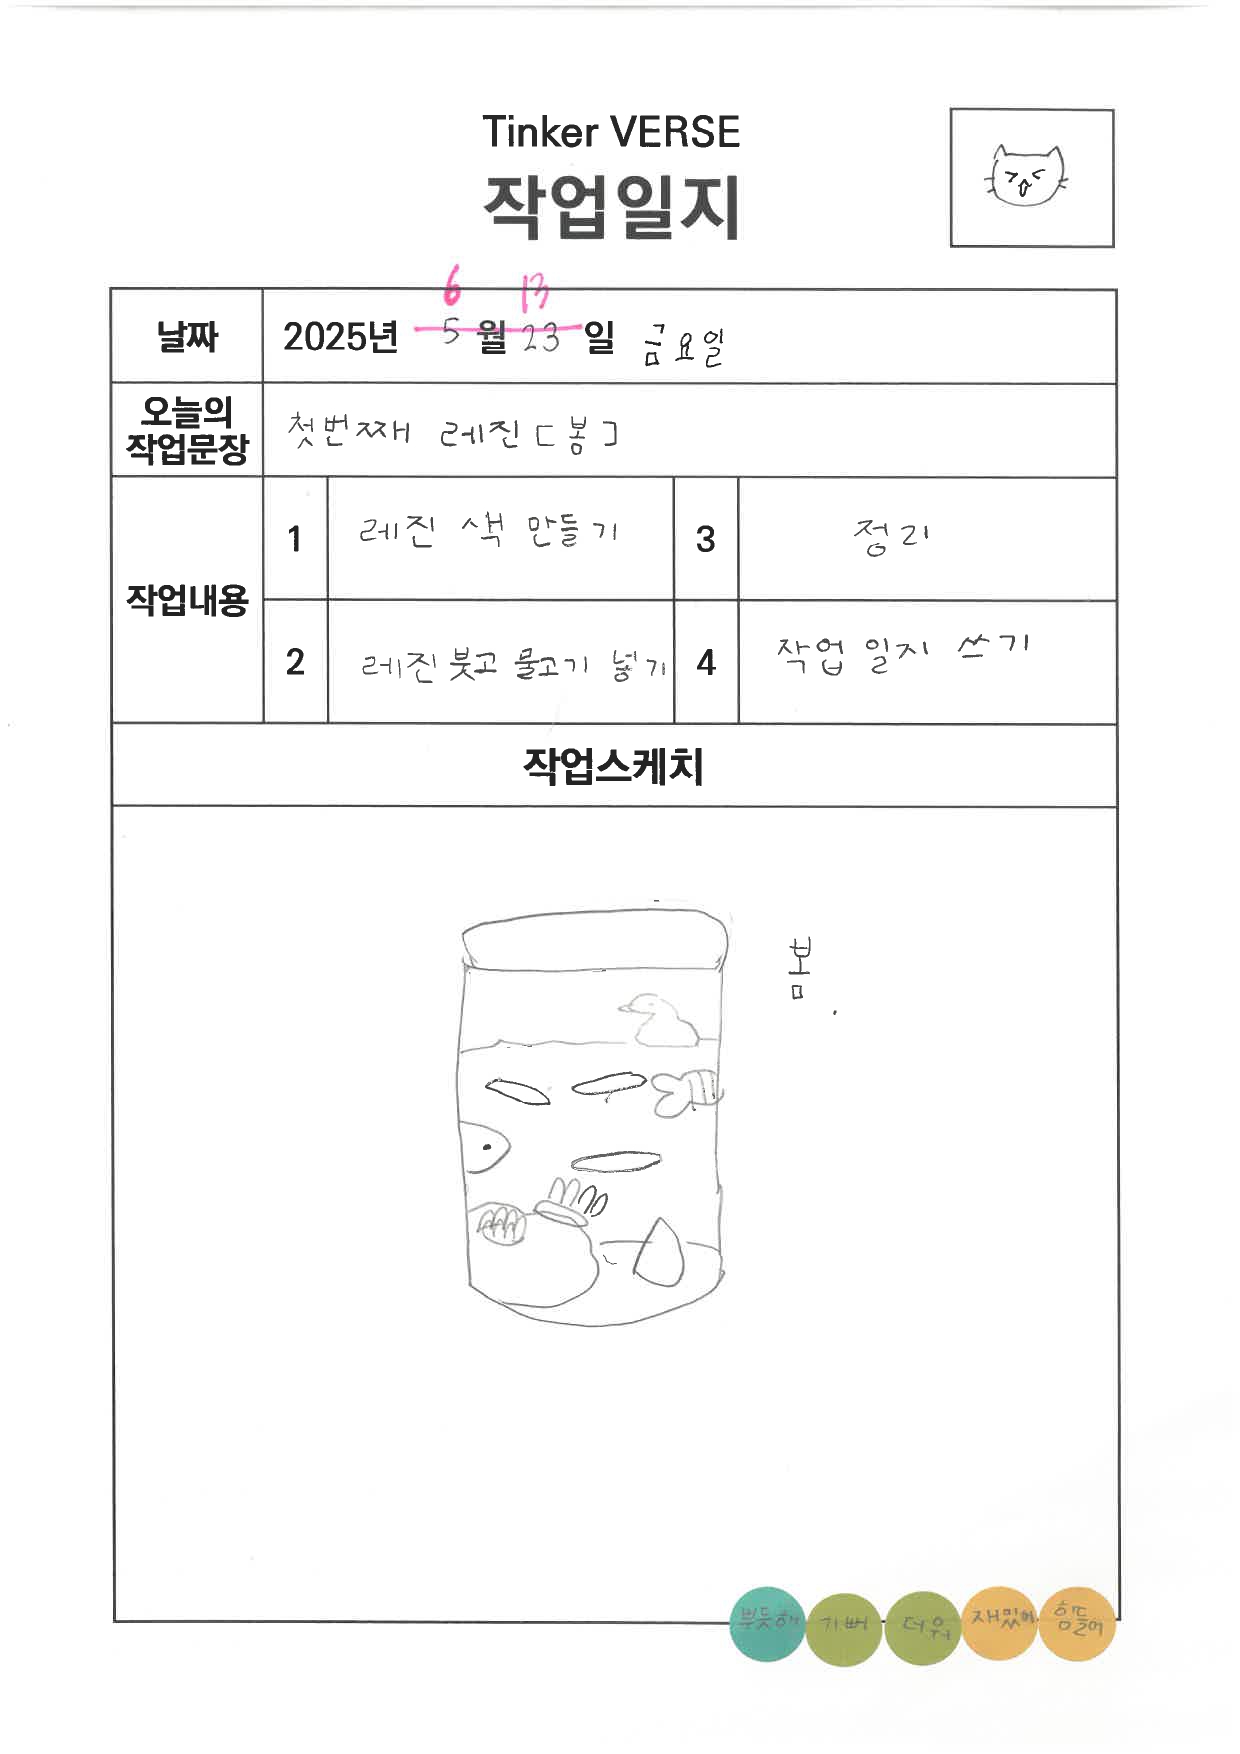 Tinker VERSE
작업일지
6 13
날짜 2025년 5월 23일 금요일
오늘의 작업문장 첫번째 레진 [봄]
작업내용
1 레진 색 만들기
2 레진 붓고 물고기 넣기
3 정리
4 작업 일지 쓰기
작업스케치
봄.
뿌듯해 기뻐 더워 재밌어 힘들어